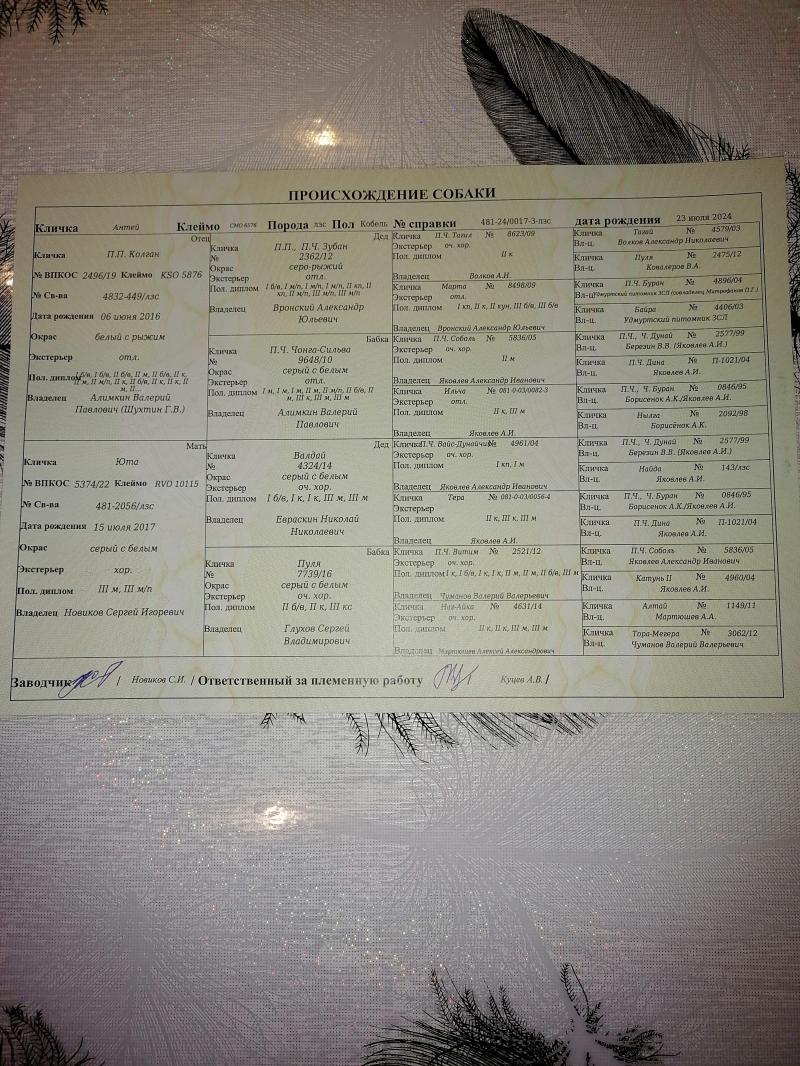 ПРОИСХОЖДЕНИЕ СОБАКИ
Кличка Антей Клеймо СМО 6576 Порода лзс Пол Кобель № справки 481-24/0017-3-лзс дата рождения 23 июля 2024
Отец
Кличка П.П. Колган
№ ВПКОС 2496/19 Клеймо KSO 5876
№ Св-ва 4832-449/лзс
Дата рождения 06 июня 2016
Окрас белый с рыжим
Экстерьер отл.
Пол. диплом I б/в, I б/в, II м, II б/в, II к,
II м, II м/п, II к, II б/в, II к, II к, II
м, II...
Владелец Алимкин Валерий
Павлович (Шухтин Г.В.)
Мать
Кличка Юта
№ ВПКОС 5374/22 Клеймо RVO 10115
№ Св-ва 481-2056/лзс
Дата рождения 15 июля 2017
Окрас серый с белым
Экстерьер хор.
Пол. диплом III м, III м/п
Владелец Новиков Сергей Игоревич
Дед
Кличка П.П., П.Ч. Зубан
№ 2362/12
Окрас серо-рыжий
Экстерьер отл.
Пол. диплом I б/в, I м/п, I м/п, I м/п, II кп, II
кп, II м/п, III м/п, III м/п
Владелец Вронский Александр
Юльевич
Бабка
Кличка П.Ч. Чонга-Сильва
№ 9648/10
Окрас серый с белым
Экстерьер отл.
Пол. диплом I м, I м, I м, II м, II м/п, II б/в, II
м, III к, III м, III м
Владелец Алимкин Валерий
Павлович
Дед
Кличка Валдай
№ 4324/14
Окрас серый с белым
Экстерьер оч. хор.
Пол. диплом I б/в, I к, I к, III м, III м
Владелец Евраскин Николай
Николаевич
Бабка
Кличка Пуля
№ 7739/16
Окрас серый с белым
Экстерьер оч. хор.
Пол. диплом II б/в, II к, III кс
Владелец Глухов Сергей
Владимирович
Кличка П.Ч. Тагил № 8623/09
Экстерьер оч. хор.
Пол. диплом II к
Владелец Волков А.Н.
Кличка Марта № 8498/09
Экстерьер отл.
Пол. диплом I кп, II м, II кун, III б/в, III б/в
Владелец Вронский Александр Юльевич
Кличка П.Ч. Соболь № 5836/05
Экстерьер оч. хор.
Пол. диплом II м
Владелец Яковлев Александр Иванович
Кличка Ильча № 081-0-03/0082-3
Экстерьер отл.
Пол. диплом II к, III м
Владелец Яковлев А.И.
Кличка П.Ч. Вайс-Дунайчик № 4961/04
Экстерьер оч. хор.
Пол. диплом I кп, I м
Владелец Яковлев Александр Иванович
Кличка Тера № 081-0-03/0056-4
Экстерьер
Пол. диплом II к, III к, III м
Владелец Яковлев А.И.
Кличка П.Ч. Витим № 2521/12
Экстерьер оч. хор.
Пол. диплом I к, I б/в, I к, I к, II м, II м, II б/в, III м
Владелец Чуманов Валерий Валерьевич
Кличка № 4631/14
Экстерьер оч. хор.
Пол. диплом II к, II к, III м, III м
Владелец Мартюшев Алексей Александрович
Кличка Тагай № 4579/03
Вл-ц. Волков Александр Николаевич
Кличка Пуля № 2475/12
Вл-ц. Ковалеров В.А.
Кличка П.Ч. Буран № 4896/04
Вл-ц Удмуртский питомник ЗСЛ (совладелец Митрофанов П.Г.)
Кличка Байра № 4406/03
Вл-ц. Удмуртский питомник ЗСЛ
Кличка П.Ч., Ч. Дунай № 2577/99
Вл-ц. Березин В.В. (Яковлев А.И.)
Кличка П.Ч. Дина № П-1021/04
Вл-ц. Яковлев А.И.
Кличка П.Ч., Ч. Буран № 0846/95
Вл-ц. Борисенок А.К./Яковлев А.И.
Кличка Нылга № 2092/98
Вл-ц. Борисёнок А.К.
Кличка П.Ч., Ч. Дунай № 2577/99
Вл-ц. Березин В.В. (Яковлев А.И.)
Кличка Найда № 143/лзс
Вл-ц. Яковлев А.И.
Кличка П.Ч., Ч. Буран № 0846/95
Вл-ц. Борисенок А.К./Яковлев А.И.
Кличка П.Ч. Дина № П-1021/04
Вл-ц. Яковлев А.И.
Кличка П.Ч. Соболь № 5836/05
Вл-ц. Яковлев Александр Иванович
Кличка Катунь II № 4960/04
Вл-ц. Яковлев А.И.
Кличка Алтай № 1149/11
Вл-ц. Мартюшев А.А.
Кличка Тора-Мегера № 3062/12
Вл-ц. Чуманов Валерий Валерьевич
Заводчик / Новиков С.И. / Ответственный за племенную работу Куцев А.В. /